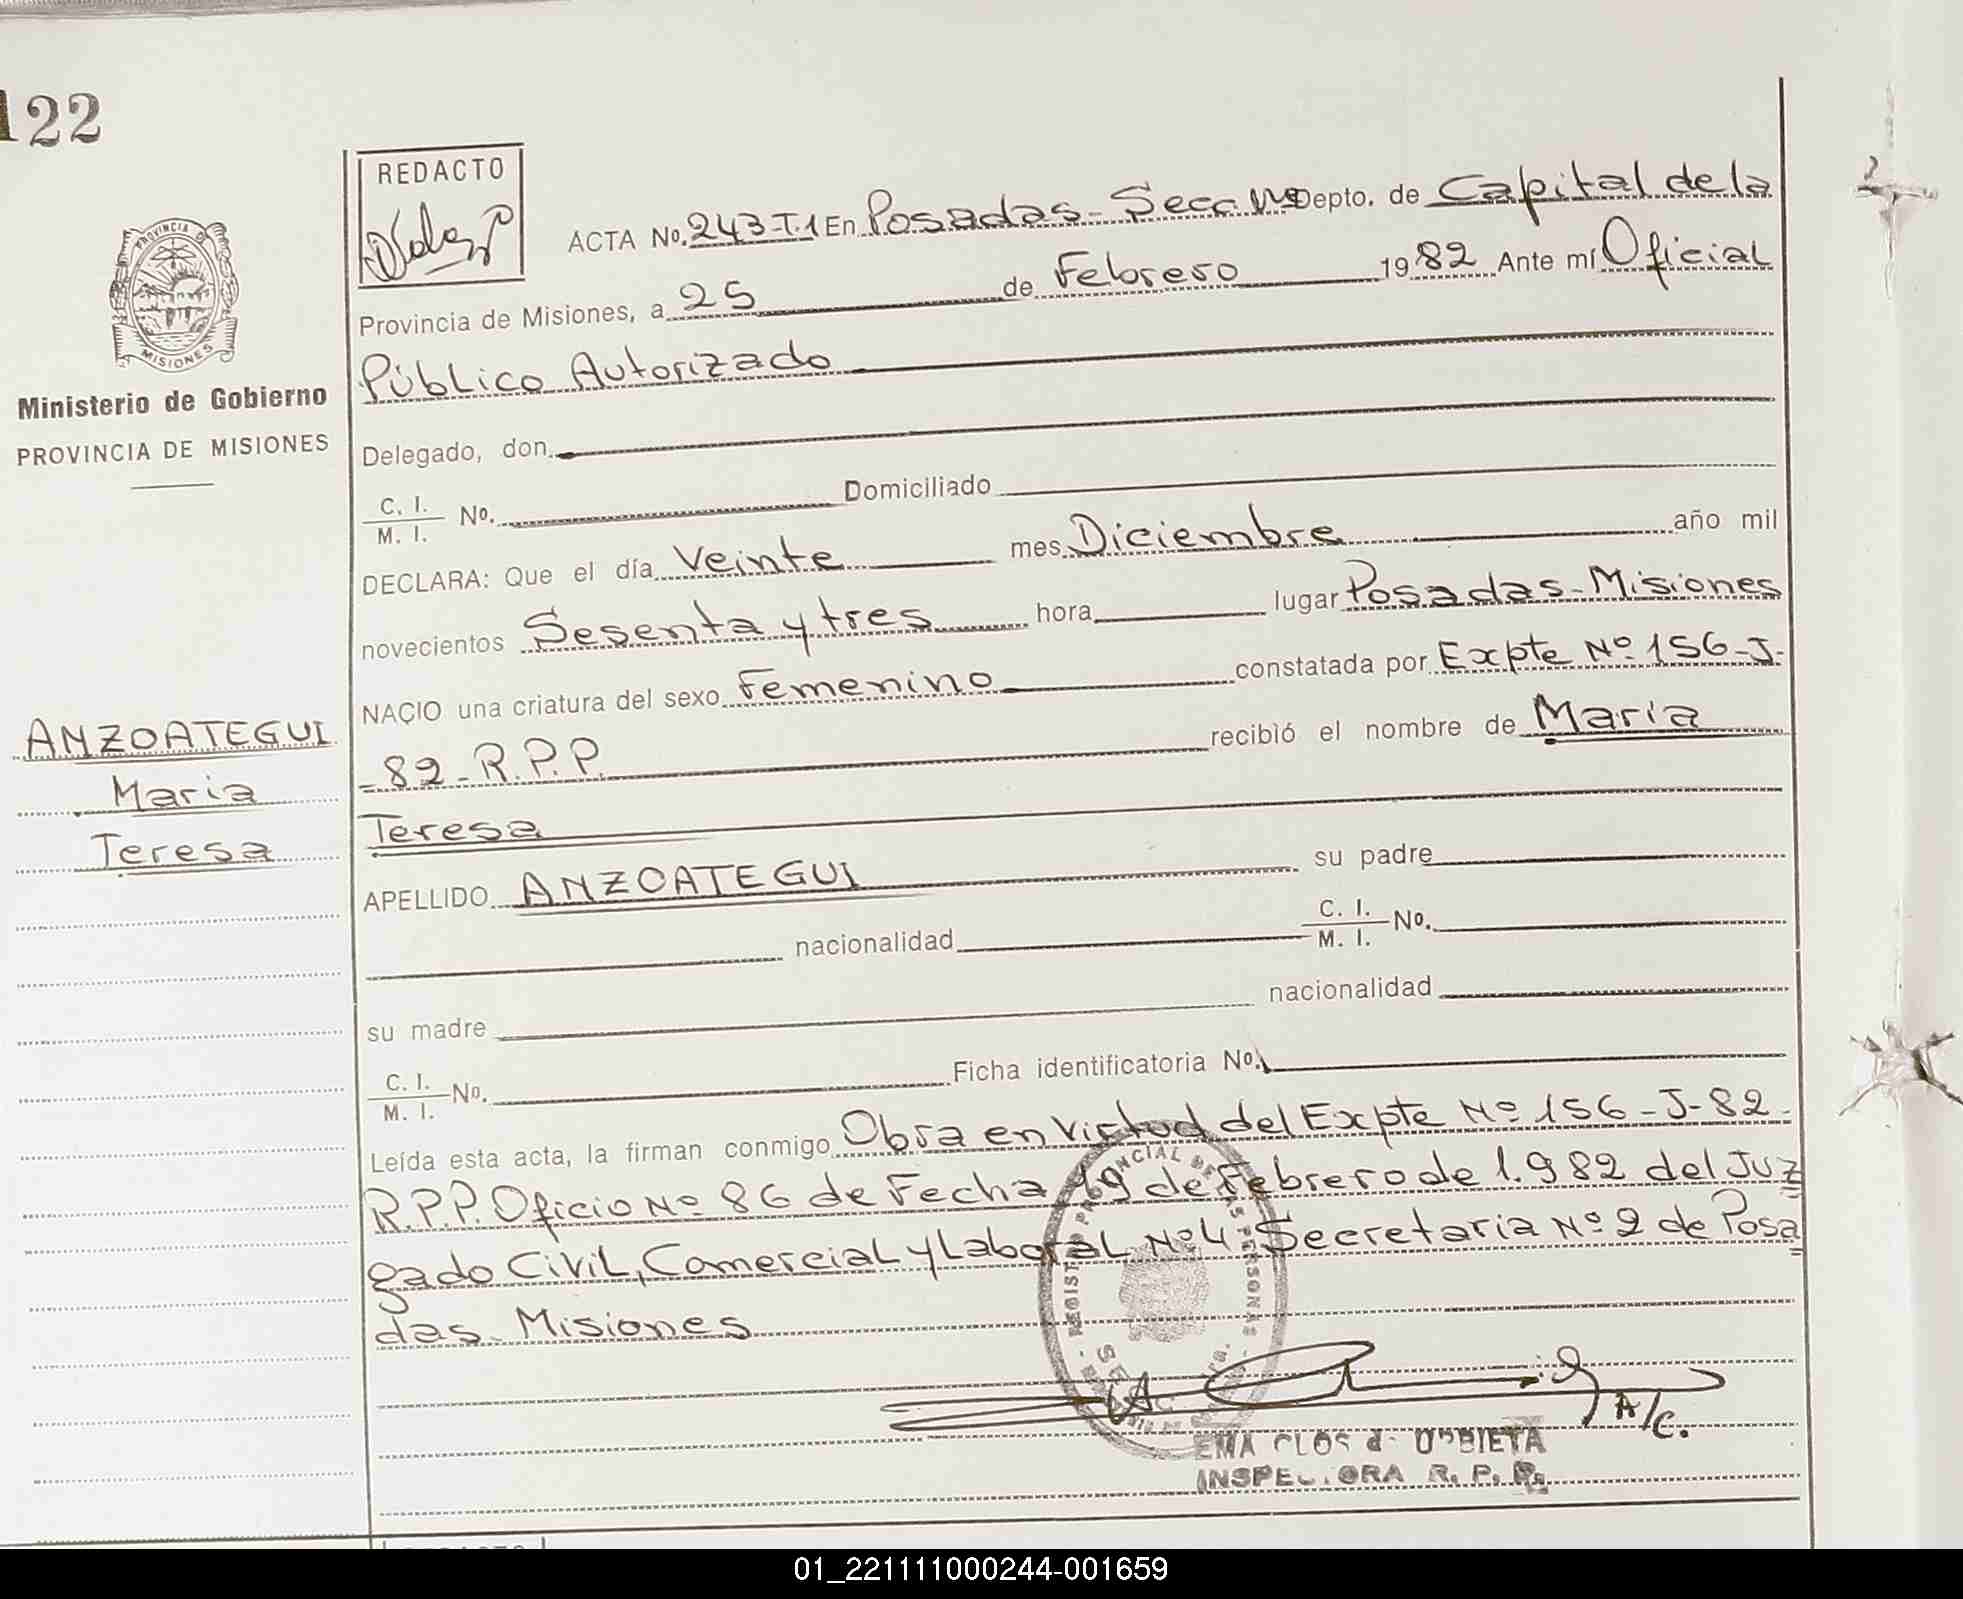 122
REDACTO
ACTA No. 243-T.1 En Posadas - Secc Depto. de Capital de la
Provincia de Misiones, a 25 de Febrero 1982 Ante mí Oficial
Público Autorizado
Delegado, don
C. I. / M. I. No. Domiciliado
DECLARA: Que el día Veinte mes Diciembre año mil
novecientos Sesenta y tres hora lugar Posadas - Misiones
NACIO una criatura del sexo Femenino constatada por Expte Nº 156-J-
-82-R.P.P. recibió el nombre de María
Teresa
APELLIDO ANZOATEGUI su padre
nacionalidad C. I. / M. I. No.
su madre nacionalidad
C. I. / M. I. No. Ficha identificatoria No.
Leída esta acta, la firman conmigo Obra en virtud del Expte Nº 156-J-82-
R.P.P. Oficio Nº 86 de Fecha 19 de Febrero de 1.982 del Juz
gado Civil, Comercial y Laboral Nº 4 Secretaria Nº 2 de Posa
das - Misiones
A/C.
EMA
INSPECTORA R. P. P.
PROVINCIA DE
MISIONES
Ministerio de Gobierno
PROVINCIA DE MISIONES
ANZOATEGUI
Maria
Teresa
01_221111000244-001659